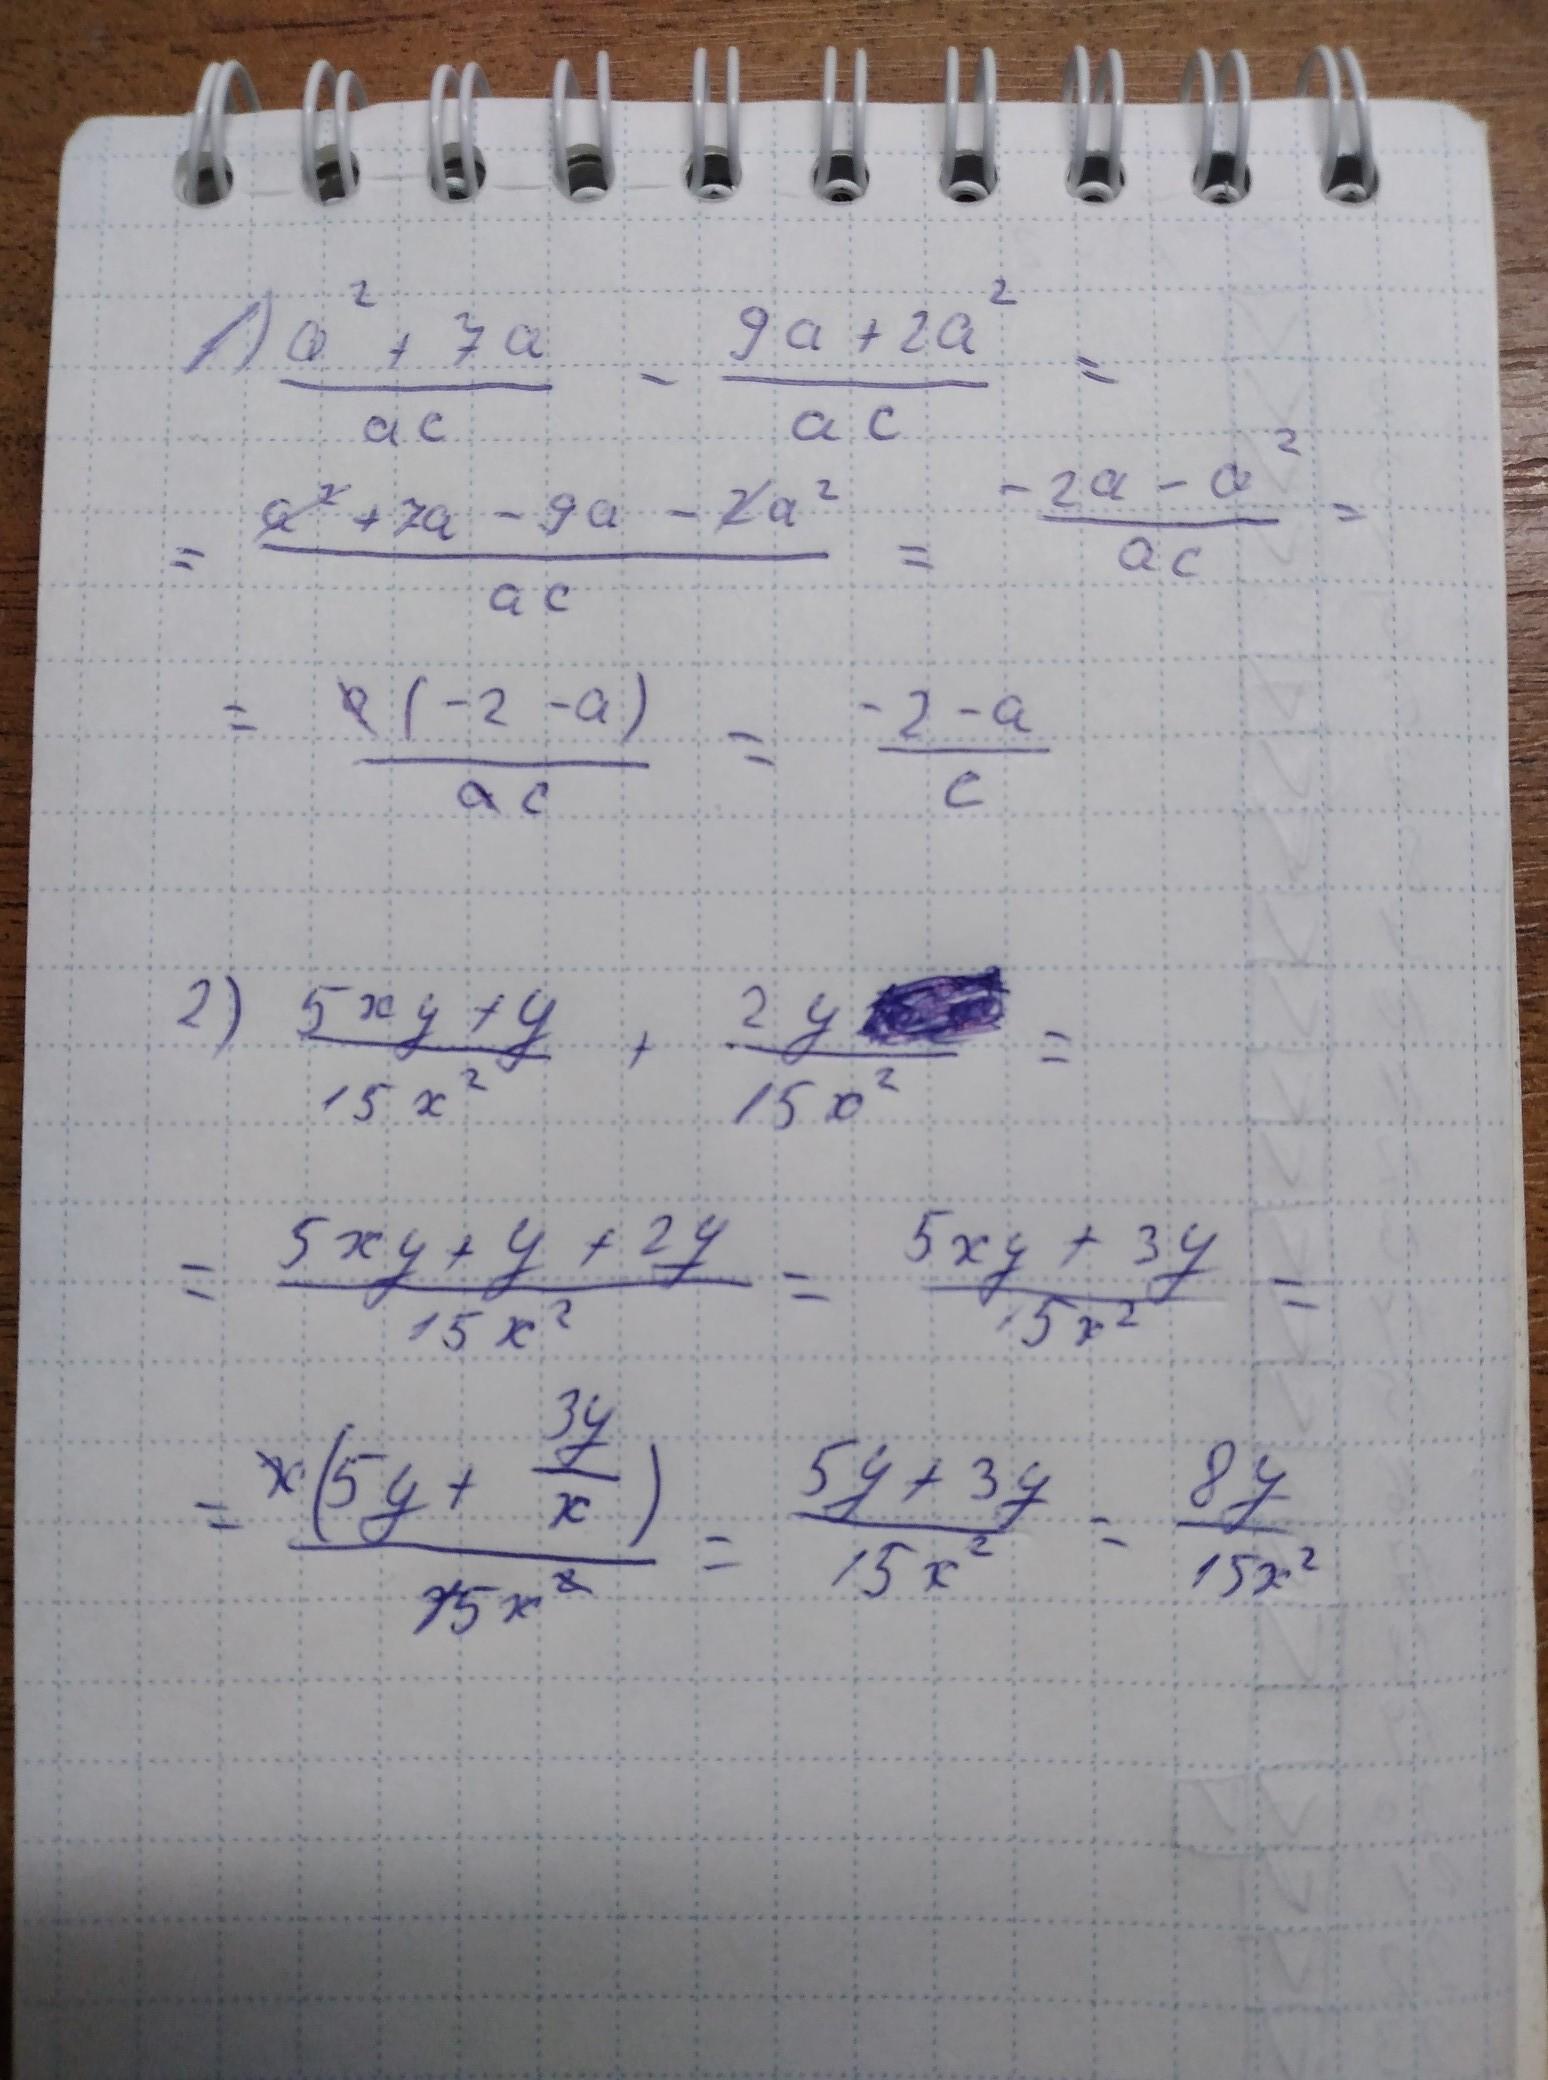 1) (a² + 7a)/(ac) - (9a + 2a²)/(ac) =
= (a² + 7a - 9a - 2a²)/(ac) = (-2a - a²)/(ac) =
= (a(-2 - a))/(ac) = (-2 - a)/c
2) (5xy + y)/(15x²) + (2y)/(15x²) =
= (5xy + y + 2y)/(15x²) = (5xy + 3y)/(15x²) =
= (x(5y + 3y/x))/(15x²) = (5y + 3y)/(15x²) = (8y)/(15x²)